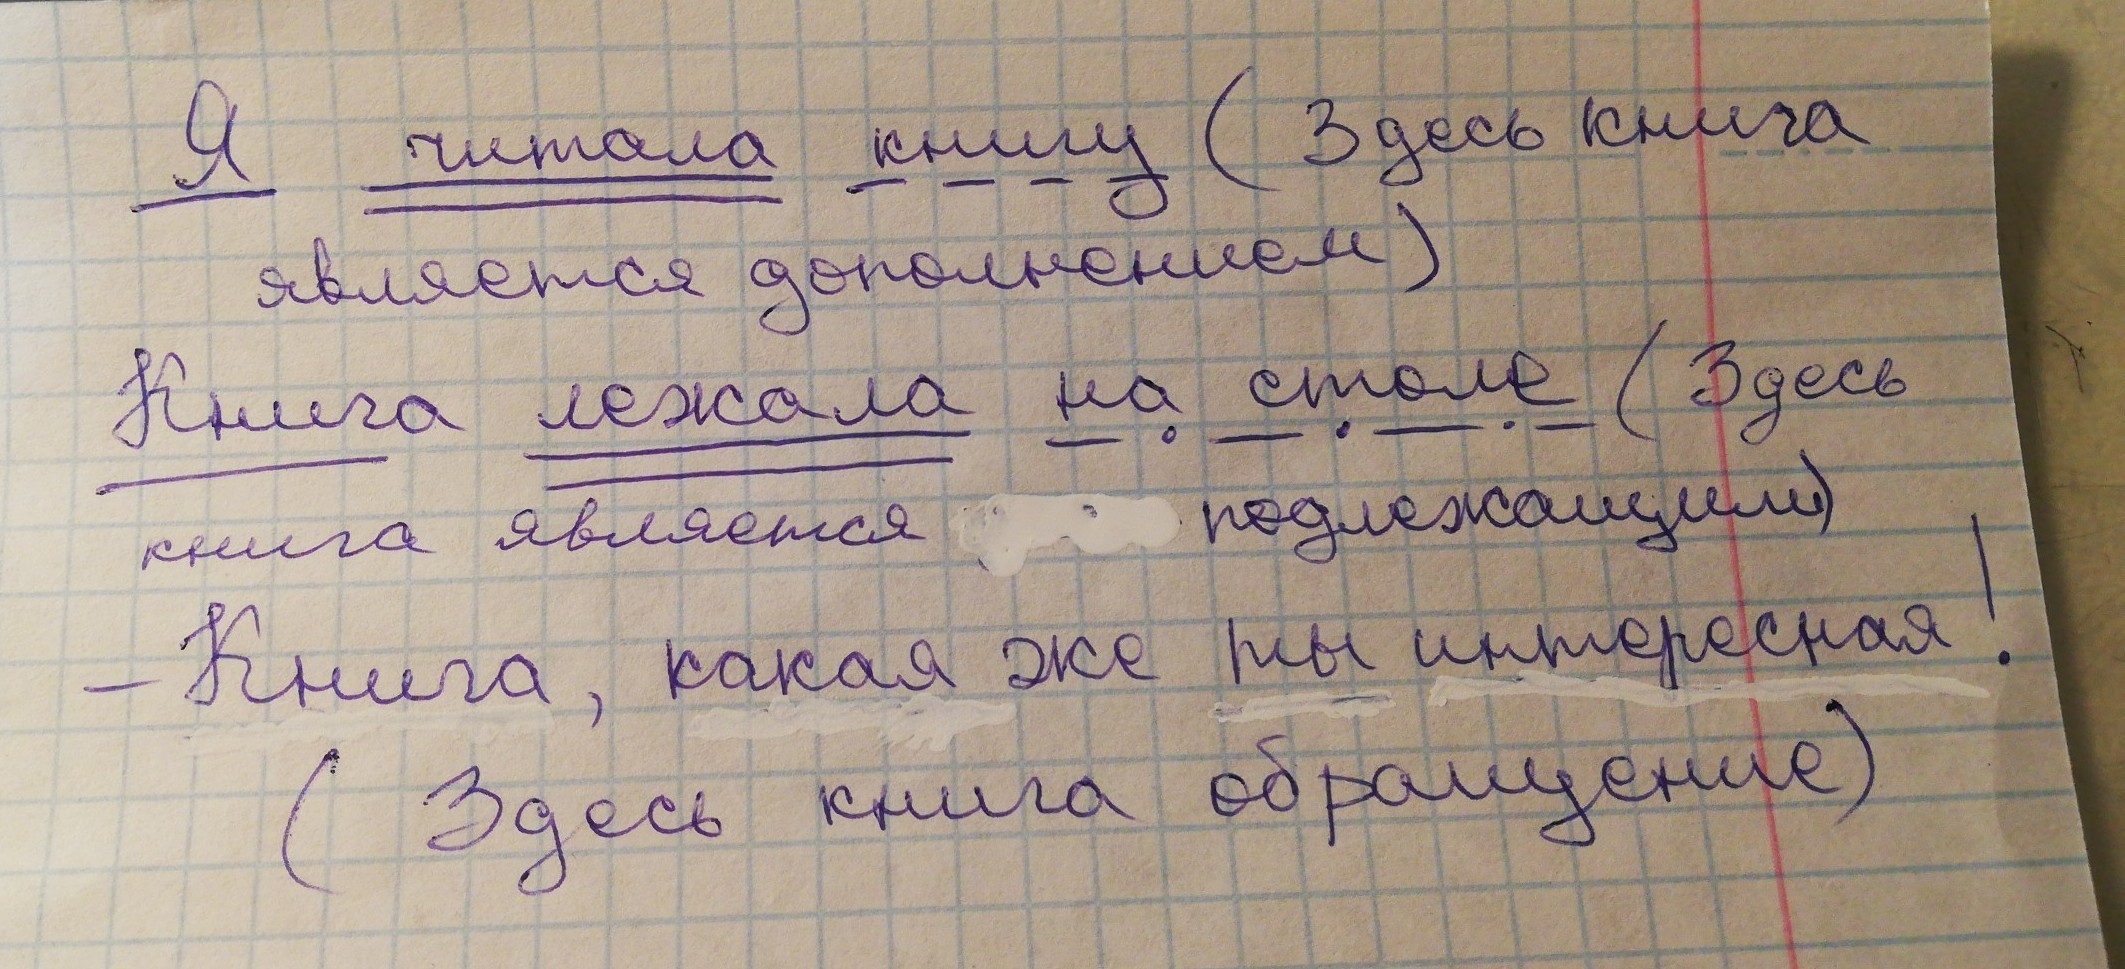 Я читала книгу (Здесь книга
является дополнением)
Книга лежала на столе (Здесь
книга является подлежащим)
– Книга, какая же ты интересная!
(Здесь книга обращение)